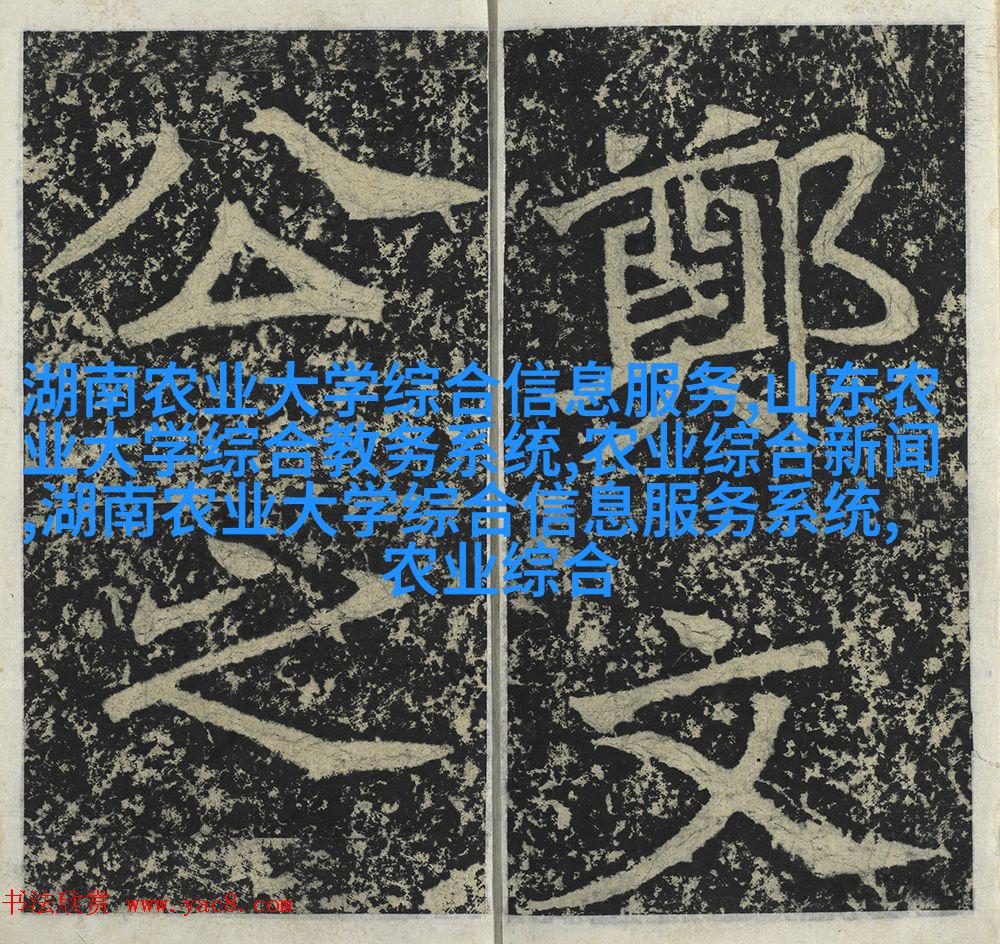 鄭文
公之
湖南农业大学综合信息服务,山东农
业大学综合教务系统,农业综合新闻
,湖南农业大学综合信息服务系统,
农业综合
书法欣赏 www.yac8.com